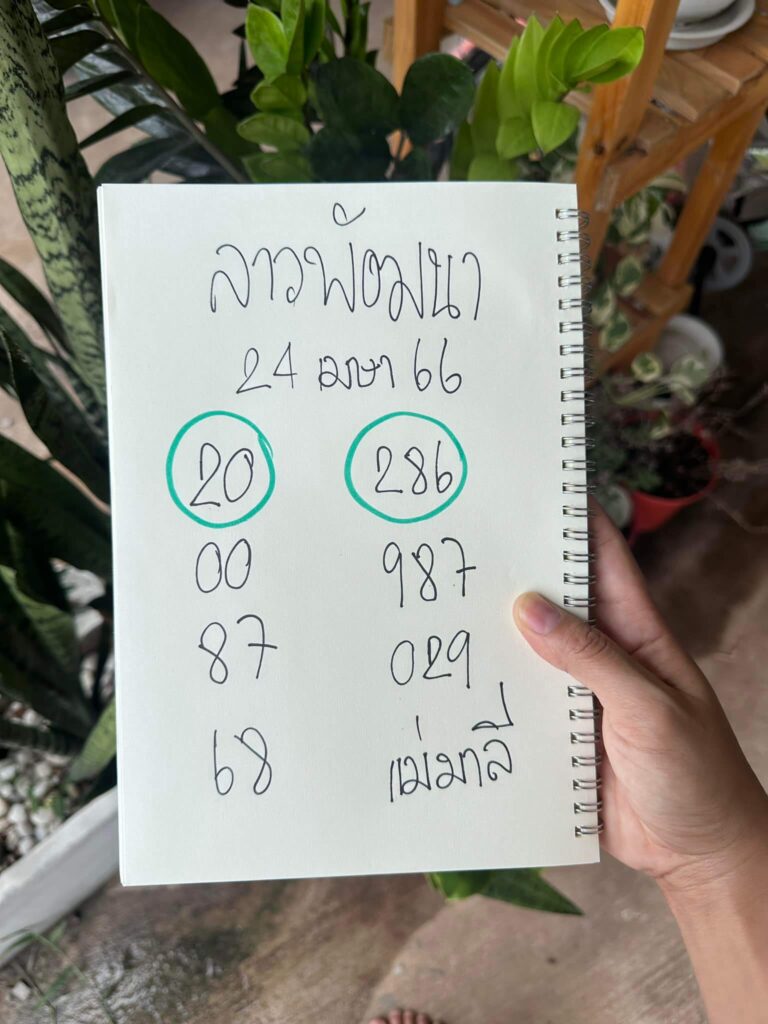 ลาวพัฒนา
24 เมษา 66
20 286
00 987
87 029
68 แม่มาลี